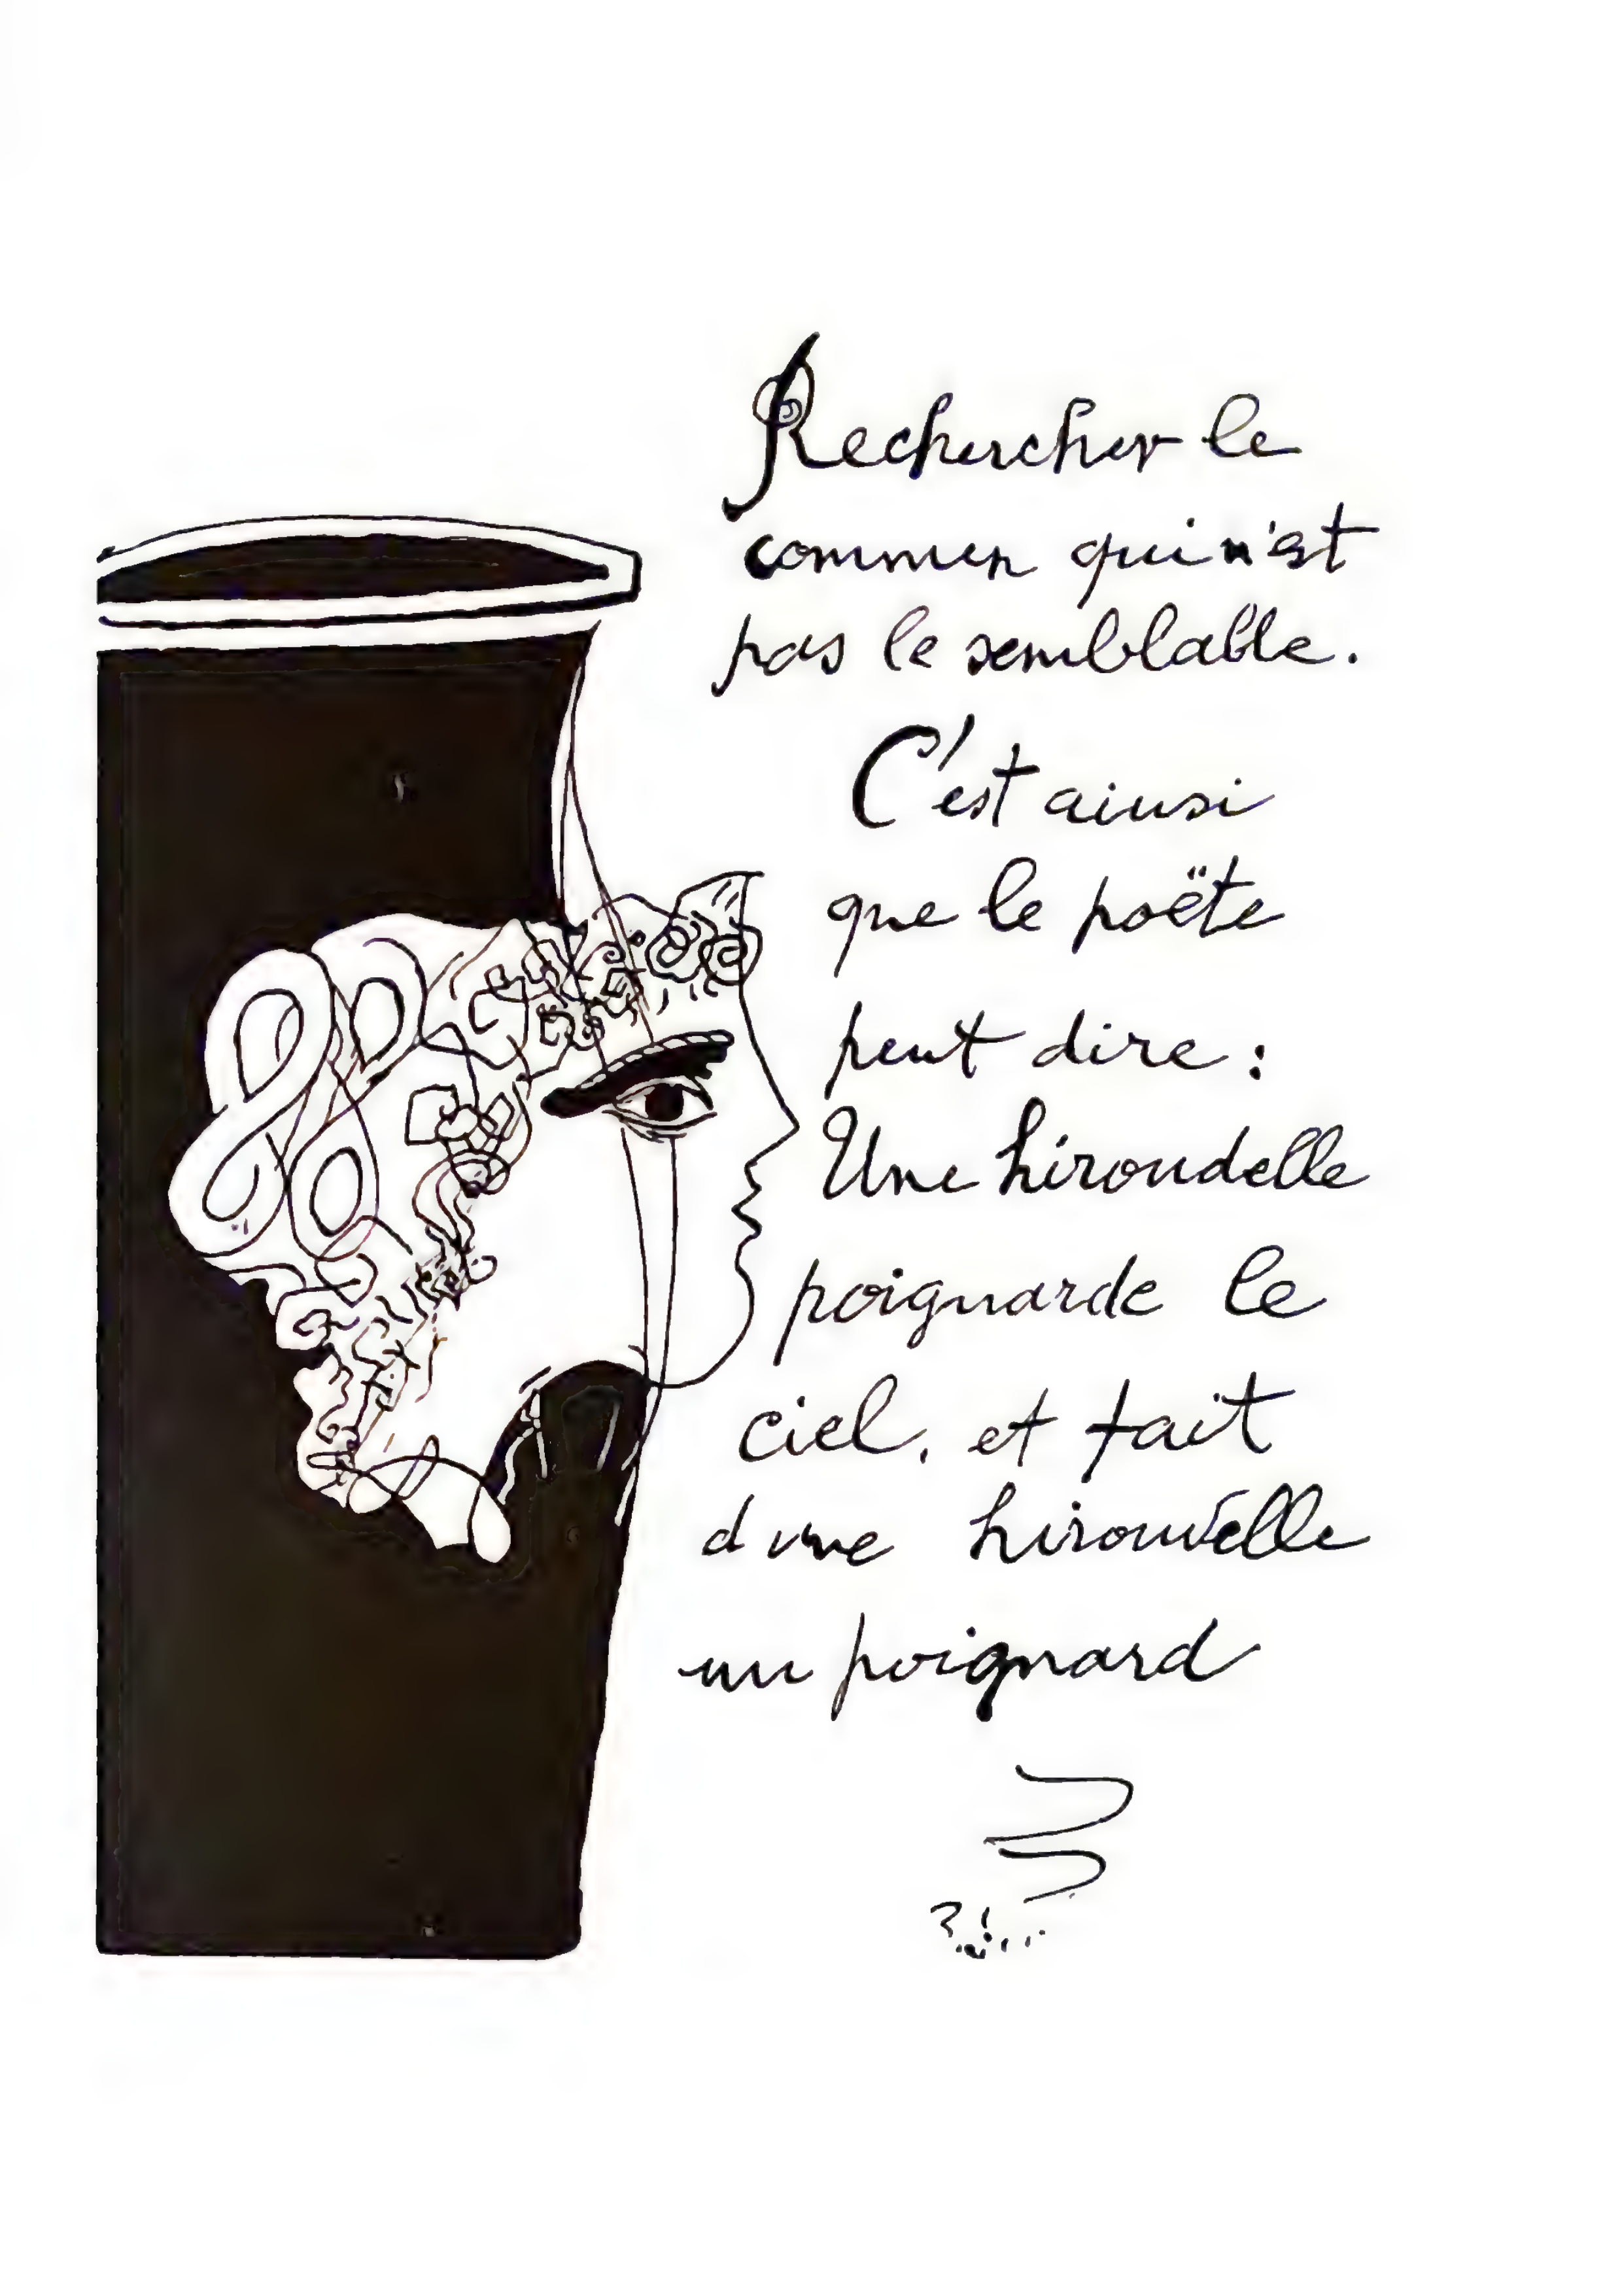 Rechercher le
commun qui n'est
pas le semblable.
C'est ainsi
que le poëte
peut dire :
Une hirondelle
poignarde le
ciel, et fait
d'une hirondelle
un poignard